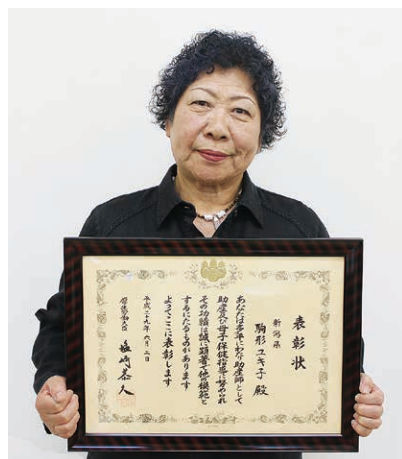 表彰状
新潟県
駒形ユキ子殿
あなたは多年にわたり助産師として
助産及び母子保健指導に努められ
その功績は誠に顕著で他の模範と
するに足るものがあります
よってここに表彰します
平成二十九年六月二日
厚生労働大臣 塩崎恭久